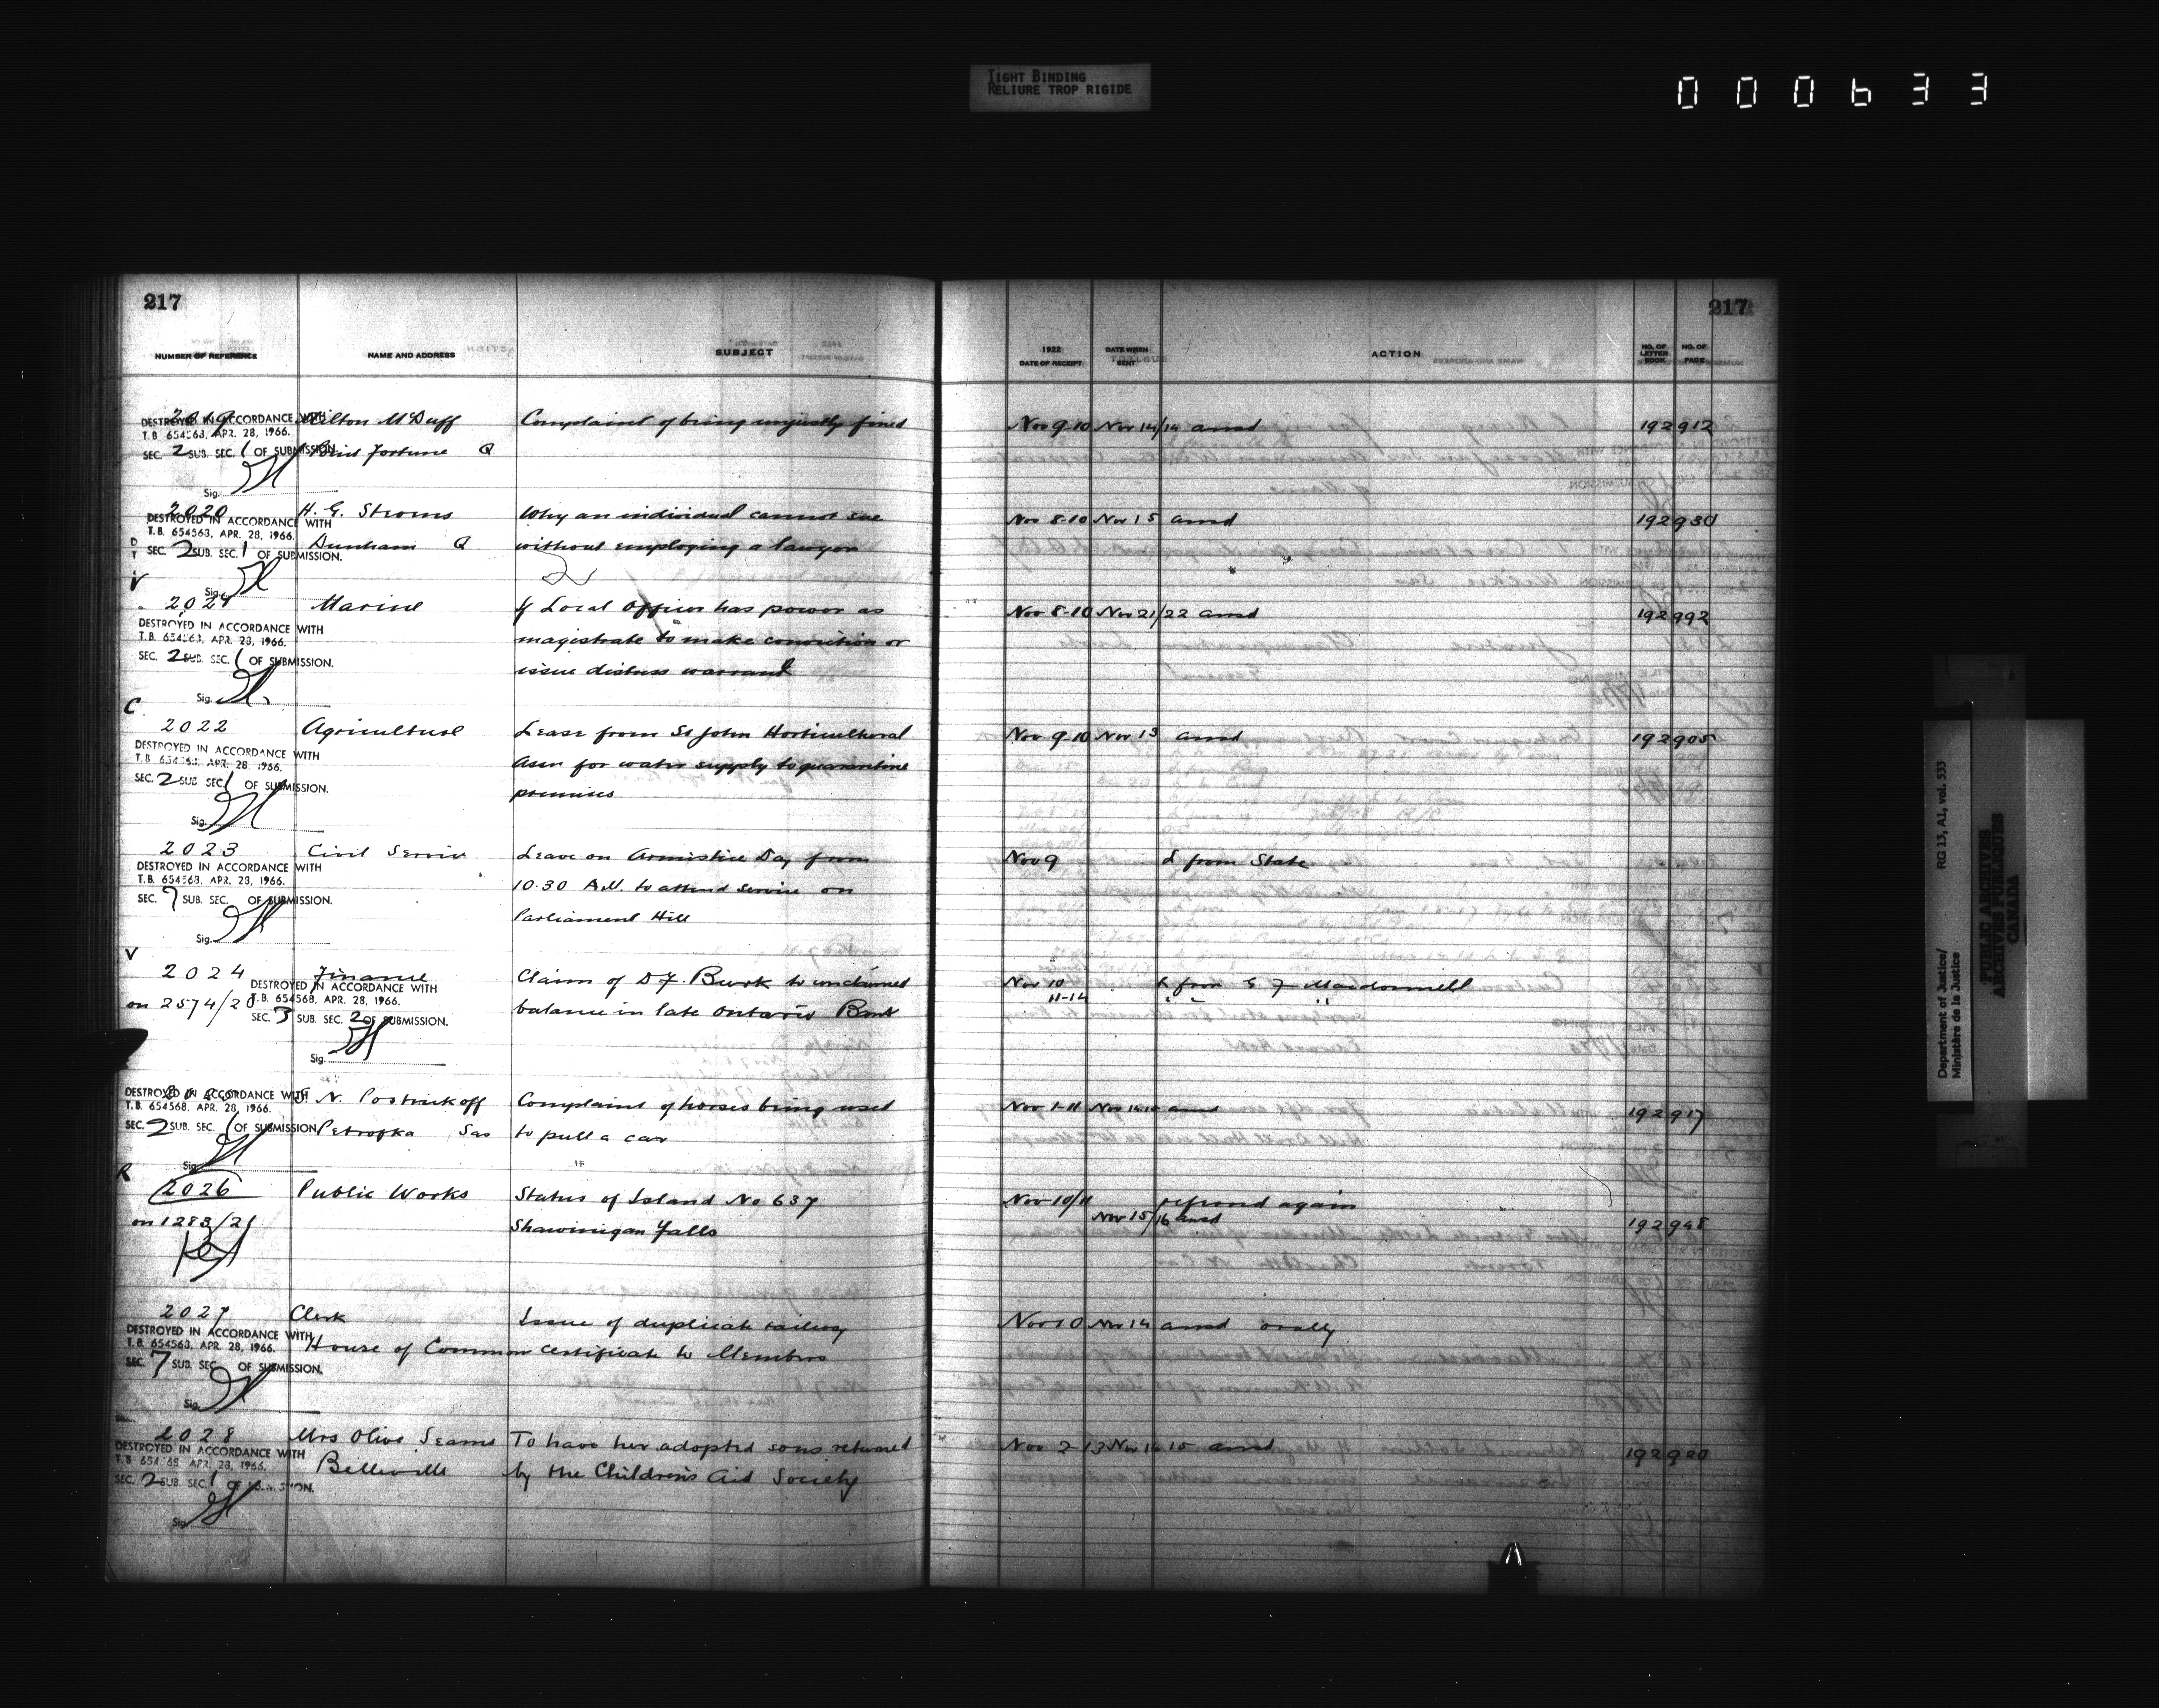 TIGHT BINDING
RELIURE TROP RIGIDE
000633
217
NUMBER OF REFERENCE NAME AND ADDRESS SUBJECT
2019 Milton McDuff Complaint of being unjustly fined
DESTROYED IN ACCORDANCE WITH
T.B. 654563, APR. 28, 1966.
SEC. 2 SUB. SEC. 1 OF SUBMISSION. Fortune Q
Sig.
2020 H. G. Stroms Why an individual cannot sue
DESTROYED IN ACCORDANCE WITH
T.B. 654563, APR. 28, 1966.
SEC. 2 SUB. SEC. 1 OF SUBMISSION. Dunham Q without employing a lawyer
Sig.
V
2021 Marine If Local Officer has power as
DESTROYED IN ACCORDANCE WITH
T.B. 654563, APR. 28, 1966. magistrate to make conviction or
SEC. 2 SUB. SEC. 1 OF SUBMISSION. issue distress warrant
Sig.
C
2022 Agricultural Lease from St John Horticultural
DESTROYED IN ACCORDANCE WITH
T.B. 654568, APR. 28, 1966. Assn for water supply to quarantine
SEC. 2 SUB. SEC. 1 OF SUBMISSION. premises
Sig.
2023 Civil Service Leave on Armistice Day from
DESTROYED IN ACCORDANCE WITH
T.B. 654568, APR. 28, 1966. 10.30 A.M. to attend service on
SEC. 7 SUB. SEC. OF SUBMISSION. Parliament Hill
Sig.
V
2024 Finance Claim of D.F. Burk to unclaimed
DESTROYED IN ACCORDANCE WITH
on 2574/20 T.B. 654568, APR. 28, 1966. balance in late Ontario Bank
SEC. 3 SUB. SEC. 2 OF SUBMISSION.
Sig.
N. Postnikoff Complaint of horses being used
DESTROYED IN ACCORDANCE WITH
T.B. 654568, APR. 28, 1966.
SEC. 2 SUB. SEC. 1 OF SUBMISSION. Petrofka Sas to pull a car
Sig.
R
2026 Public Works Status of Island No 637
on 1283/21 Shawinigan Falls
2027 Clerk Issue of duplicate railway
DESTROYED IN ACCORDANCE WITH
T.B. 654568, APR. 28, 1966. House of Common certificate to Members
SEC. 7 SUB. SEC. OF SUBMISSION.
Sig.
2028 Mrs Olive Seams To have her adopted sons returned
DESTROYED IN ACCORDANCE WITH
T.B. 654568, APR. 28, 1966. Belleville by the Children's Aid Society
SEC. 2 SUB. SEC. 1 OF SUBMISSION.
Sig.
217
1922
DATE OF RECEIPT DATE WHEN SENT ACTION NO. OF LETTER BOOK NO. OF PAGE
Nov 9-10 Nov 14/14 ansd 192 912
Nov 8-10 Nov 15 ansd 192 930
Nov 8-10 Nov 21/22 ansd 192 992
Nov 9-10 Nov 13 ansd 192 905
Nov 9 L from State
Nov 10 L from G F Macdonnell
11-14 " " "
Nov 1-11 Nov 14 ansd 192 917
Nov 10/11 referred again
Nov 15/16 ansd 192 948
Nov 10 Nov 14 ansd orally
Nov 2-13 Nov 14 15 ansd 192 920
Department of Justice/
Ministère de la Justice
RG 13, A1, vol. 533
PUBLIC ARCHIVES
ARCHIVES PUBLIQUES
CANADA